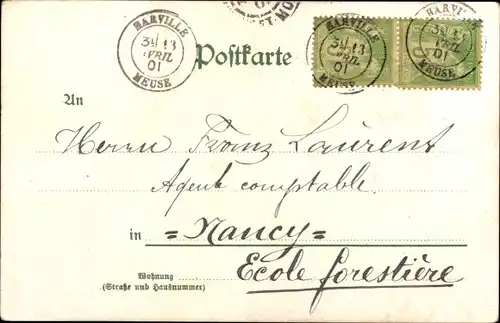 HARVILLE
3E 13
AVRIL
01
MEUSE
Postkarte
HARVILLE
3E 13
AVRIL
01
MEUSE
HARVILLE
13
AVRIL
01
MEUSE
An
Herrn Franz Laurent
Agent comptable
in =Nancy=
Ecole forestière
Wohnung
(Straße und Hausnummer)